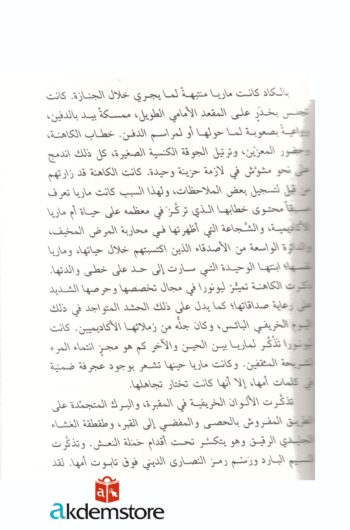 بالكاد كانت ماريا منتبهةً لما يجري خلال الجنازة. كانت
تجلس بخدَرٍ على المقعد الأمامي الطويل، ممسكةً بيد بالدفين،
وواعيةً بصعوبة لما حولها أو لمراسم الدفن. خطاب الكاهنة،
وحضور المعزّين، وترتيل الجوقة الكنسية الصغيرة، كل ذلك اندمج
على نحو مشوّش في لازمة حزينة وحيدة. كانت الكاهنة قد زارتهم
من قبل لتسجيل بعض الملاحظات، ولهذا السبب كانت ماريا تعرف
مسبقاً محتوى خطابها الذي تركّزَ في معظمه على حياة أم ماريا
الأكاديمية، والشّجاعة التي أظهرتها في محاربة المرض المخيف،
والدائرة الواسعة من الأصدقاء الذين اكتسبتهم خلال حياتها، وماريا
نفسها؛ ابنتها الوحيدة التي سارت إلى حد على خطى والدتها.
ذكرت الكاهنة تميّز ليونورا في مجال تخصصها وحرصها الشديد
على رعاية صداقاتها؛ كما يدل على ذلك الحشد المتواجد في ذلك
اليوم الخريفي البائس، وكان جلّه من زملائها الأكاديميين. كانت
ليونورا تذكّر لماريا بين الحين والآخر كم هو مجزٍ انتماء المرء
لشريحة المثقفين. وكانت ماريا حينها تشعر بوجود عجرفة ضمنية
في كلمات أمها، إلا أنها كانت تختار تجاهلها.
تذكّرت الألوان الخريفية في المقبرة، والبرك المتجمّدة على
الطريق المفروش بالحصى والمفضي إلى القبر، وطقطقة الغشاء
الجليدي الرقيق وهو يتكسّر تحت أقدام حَمَلة النعش. وتذكّرت
النسيم البارد ورَسْم رمز النصارى الديني فوق تابوت أمها. لقد
akdemstore